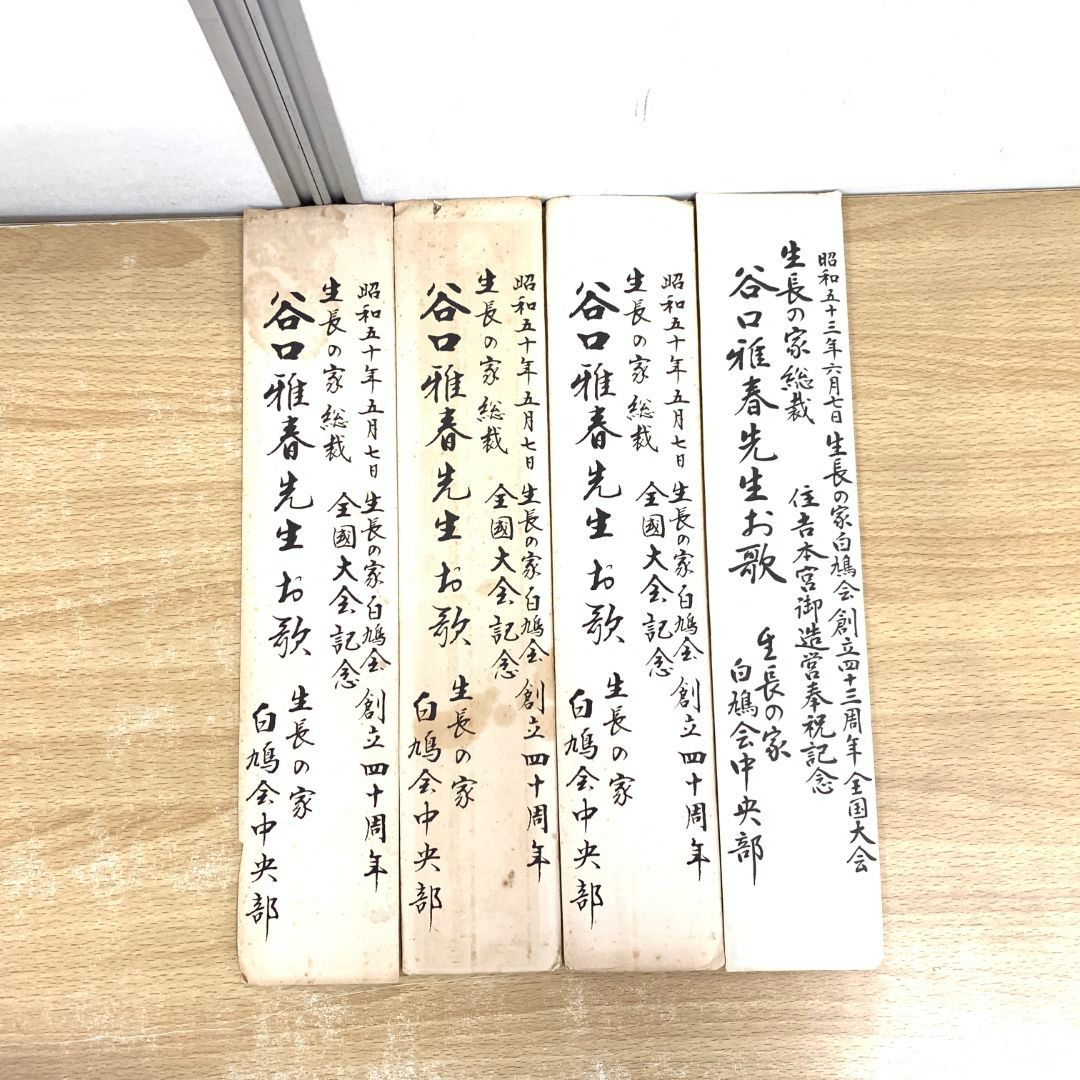 昭和五十三年六月七日 生長の家白鳩会創立四十三周年全国大会
住吉本宮御造営奉祝記念
生長の家総裁
谷口雅春先生お歌
生長の家
白鳩会中央部
昭和五十年五月七日 生長の家白鳩会創立四十周年
全國大会記念
生長の家総裁
谷口雅春先生お歌
生長の家
白鳩会中央部
昭和五十年五月七日 生長の家白鳩会創立四十周年
全國大会記念
生長の家総裁
谷口雅春先生お歌
生長の家
白鳩会中央部
昭和五十年五月七日 生長の家白鳩会創立四十周年
全國大会記念
生長の家総裁
谷口雅春先生お歌
生長の家
白鳩会中央部